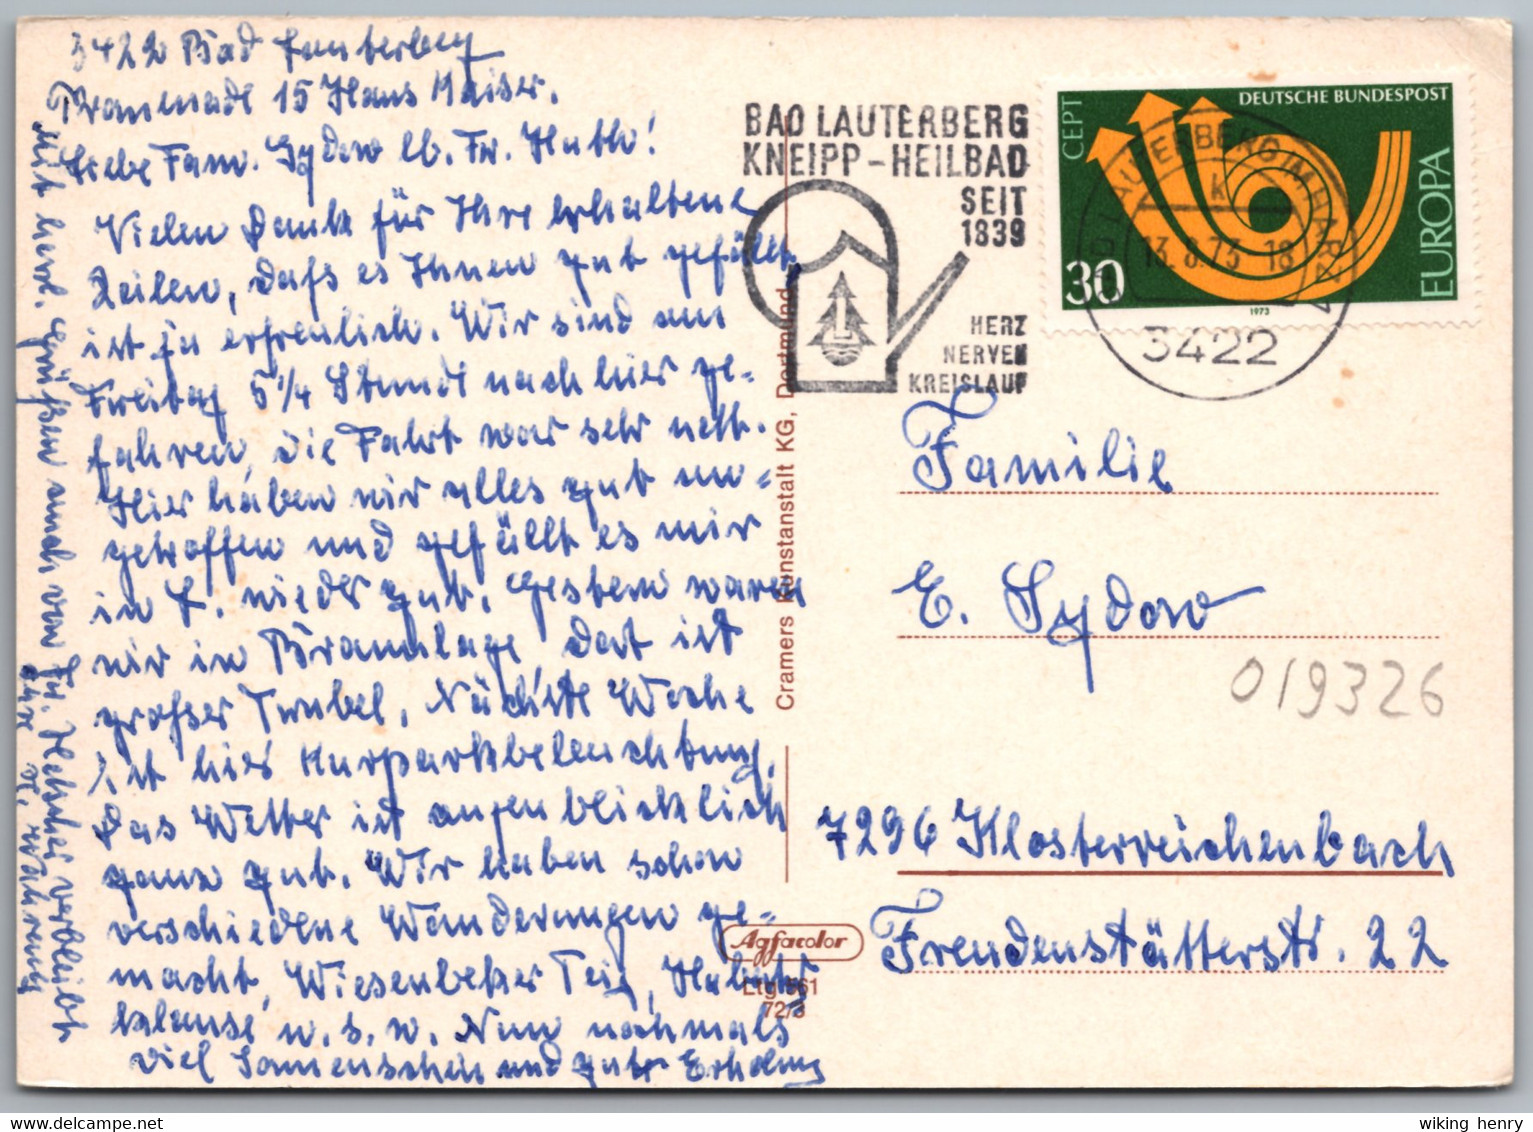 3422 Bad Lauterberg
Promenade 15 Haus Kaiser.
Liebe Fam. Sydow lb. Fr. Huth!
Vielen Dank für Ihre erhaltene
Zeilen, dass es Ihnen gut gefällt
ist ja erfreulich. Wir sind am
Freitag 5 1/4 Stunde nach hier ge-
fahren, die Fahrt war sehr nett.
Hier haben wir alles gut an-
getroffen und gefällt es mir
in L. wieder gut. Gestern waren
wir in Braunlage, dort ist
grosser Trubel. Nächste Woche
ist hier Kurparkbeleuchtung.
Das Wetter ist augenblicklich
ganz gut. Wir haben schon
verschiedene Wanderungen ge-
macht, Wiesenbeker Teig,
klause u. s. w. Nun nochmals
viel Sonnenschein und gute Erholung
Mit herzl. Grüßen auch von Fr. verbleibt
BAD LAUTERBERG
KNEIPP-HEILBAD
SEIT
1839
HERZ
NERVEN
KREISLAUF
DEUTSCHE BUNDESPOST
CEPT
EUROPA
30
1973
LAUTERBERG IM HARZ 1
k
13.8.73-18
3422
Cramers Kunstanstalt KG, Dortmund
Agfacolor
Familie
E. Sydow
019326
7296 Klosterreichenbach
Freudenstätterstr. 22
wiking henry